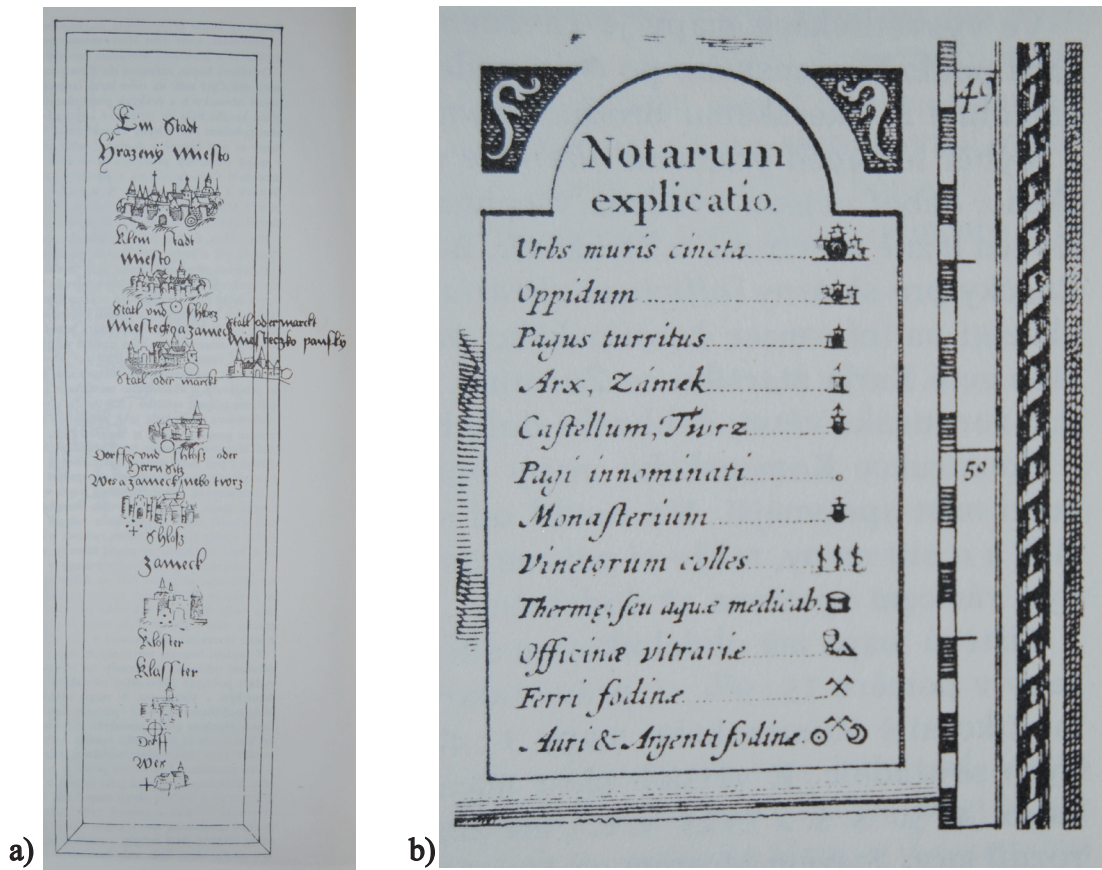 Ein Stadt
Hrazený Miesto
Klein Stadt
Miesto
Statl und Schlosz
Miesteczko a zameck
Statl oder marckt
Miesteczko panský
Statl oder marckt
Dorff und Schlosz oder
Herrn Sitz
Wes a zameck nebo twrz
Schlosz
Zameck
Kloster
Klasster
Dorff
Wes
a)
Notarum
explicatio.
Urbs muris cincta
Oppidum
Pagus turritus
Arx, Zámek
Castellum, Twrz
Pagi innominati
Monasterium
Vinetorum colles
Thermę, seu aquæ medicab.
Officinæ vitrariæ
Ferri fodinæ
Auri & Argenti fodinæ.
49
50
b)